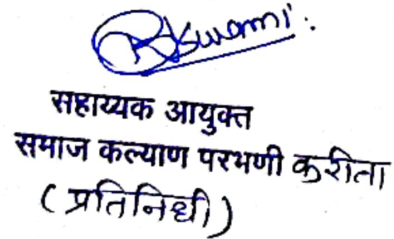 RJSwami
सहाय्यक आयुक्त
समाज कल्याण परभणी करीता
( प्रतिनिधी )